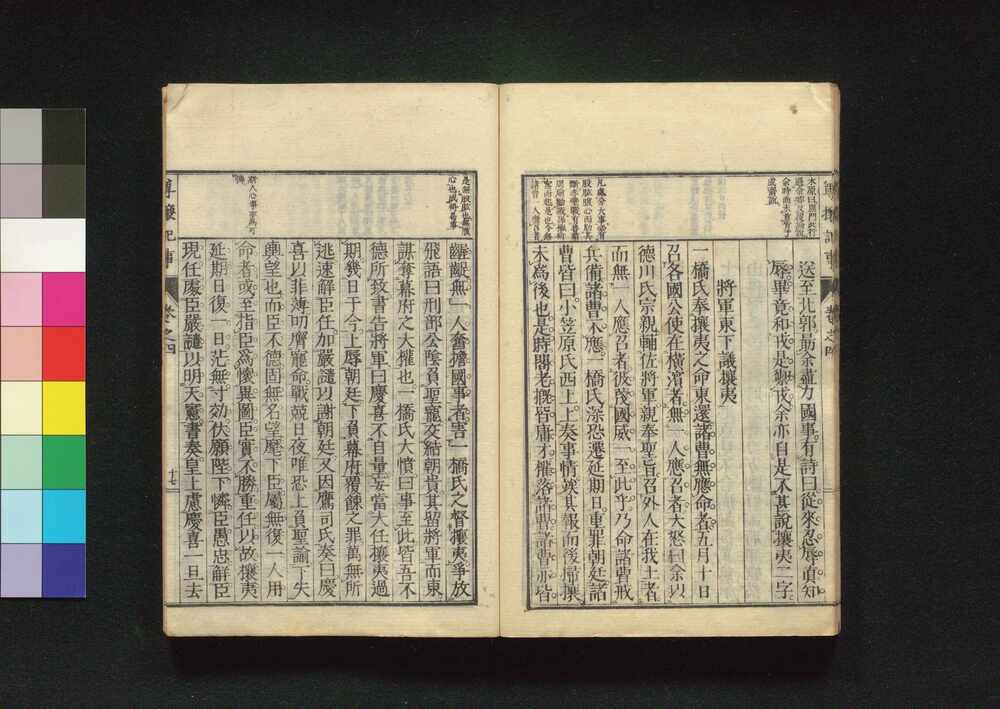 送至北郭勗余盡力國事有詩曰從來忍辱眞知
辱畢竟和戎是禦戎余亦自是不甚說攘夷二字
將軍東下議攘夷
一橋氏奉攘夷之命東還諸曹無應命者五月十日
召各國公使在橫濱者無一人應召者大怒曰余以
德川氏宗親輔佐將軍親奉聖旨召外人在我土者
而無一人應召者彼蔑國威一至此乎乃命諸曹戒
兵備諸曹不應一橋氏深恐遷延期日重罪朝廷詰
曹皆曰小笠原氏西上上奏事情竢其報而後掃攘
未爲後也是時閣老概皆庸才權落諸曹諸曹亦皆
齷齪無一人奮擔國事者害一橋氏之督攘夷爭放
飛語曰刑部公陰負聖寵交結朝貴其留將軍而東
謀奪幕府之大權也一橋氏大憤曰事至此皆吾不
德所致書告將軍曰慶喜不自量妄當大任攘夷過
期幾日于今上辱朝廷下負幕府覆餗之罪萬無所
逃速解臣任加嚴譴以謝朝廷又因鷹司氏奏曰慶
喜以非薄叨膺寵命戰兢日夜唯恐上負聖諭下失
輿望也而臣不德固無名望麾下臣屬無復一人用
命者或至指臣爲懷異圖臣實不勝重任以故攘夷
延期日復一日茫無寸効伏願陛下憐臣愚忠解臣
現任處臣嚴譴以明天憲書奏皇上慮慶喜一旦去
卷之四
十七